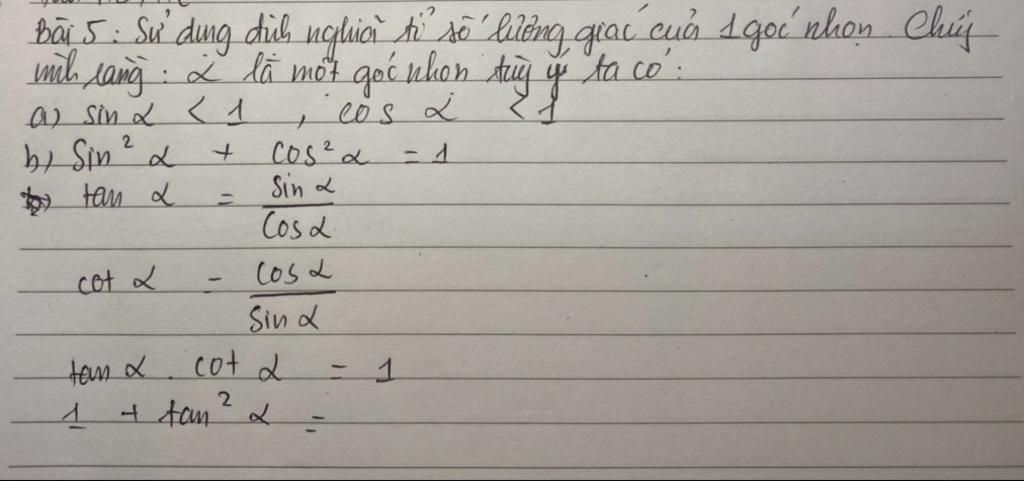 Bài 5: Sử dụng định nghĩa tỉ số lượng giác của 1 góc nhọn. Chứng
minh rằng: α là một góc nhọn tuỳ ý ta có:
a) sin α < 1 , cos α < 1
b) Sin² α + cos² α = 1
tan α = sin α / cos α
cot α = cos α / sin α
tan α . cot α = 1
1 + tan² α =